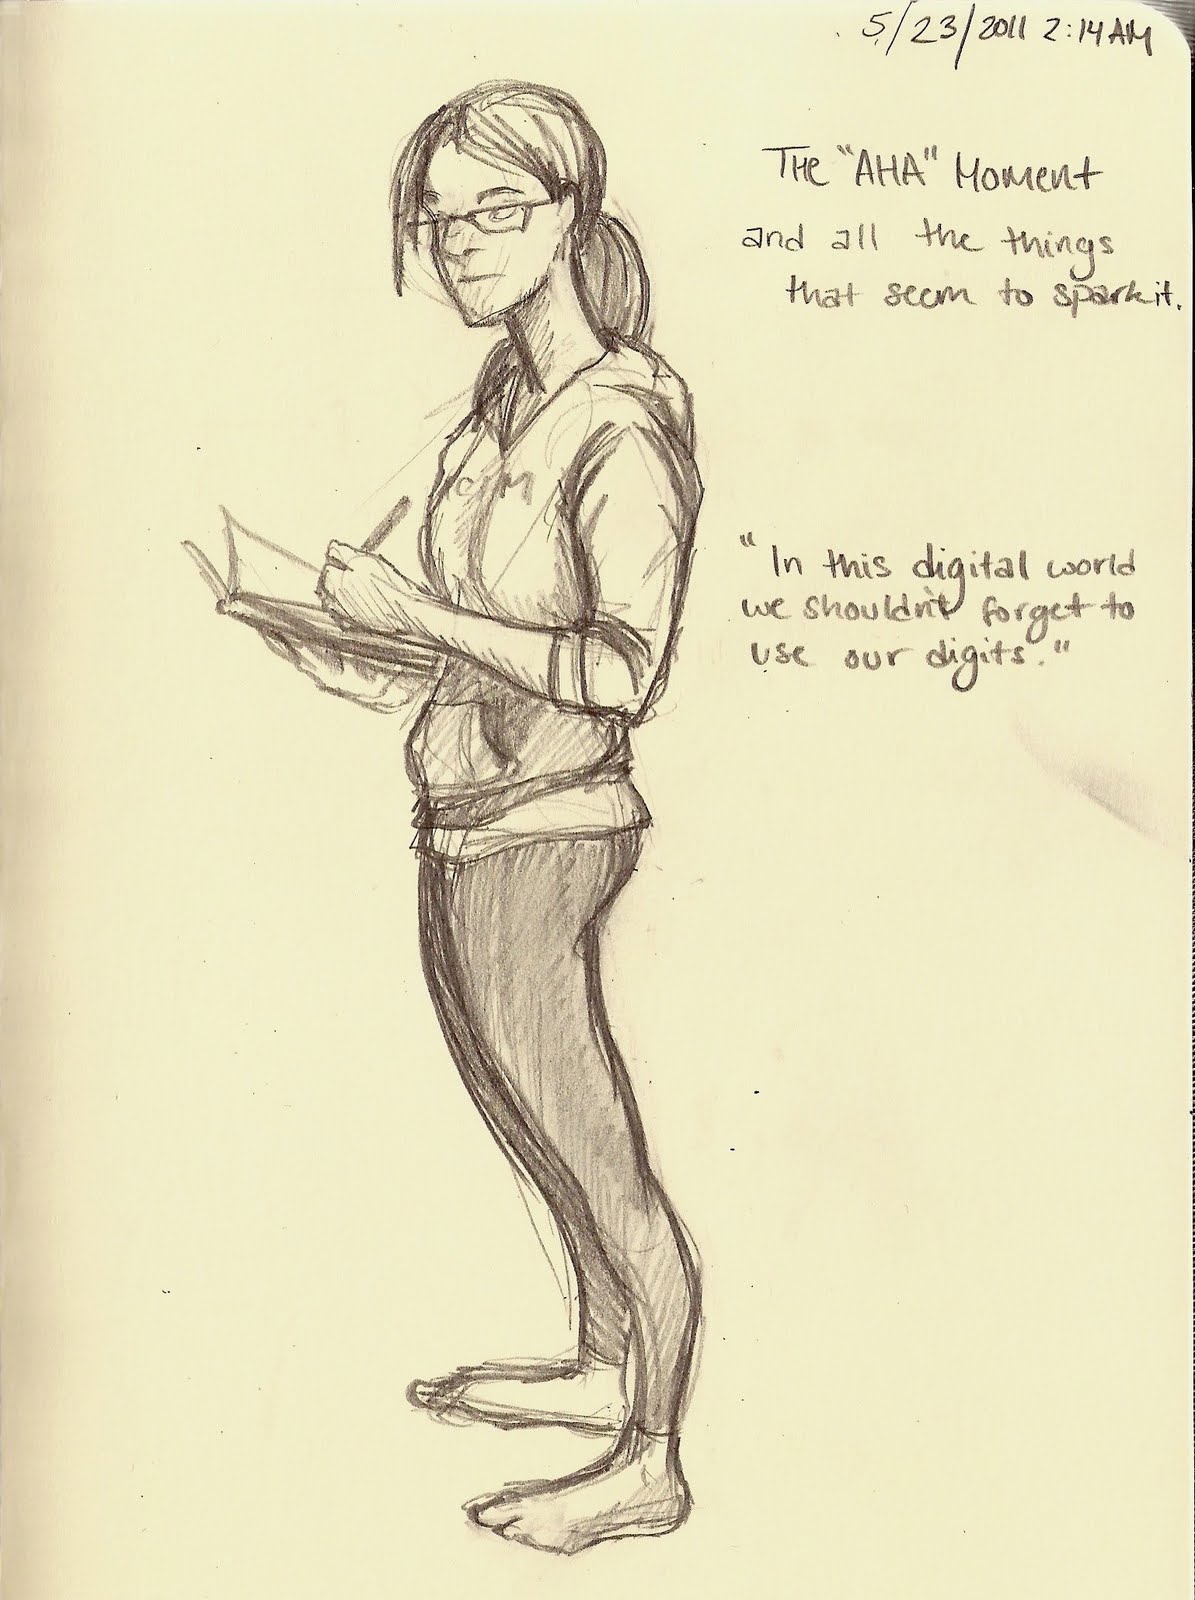 5/23/2011 2:14AM
The "AHA" Moment
and all the things
that seem to spark it.
"In this digital world
we shouldn't forget to
use our digits."